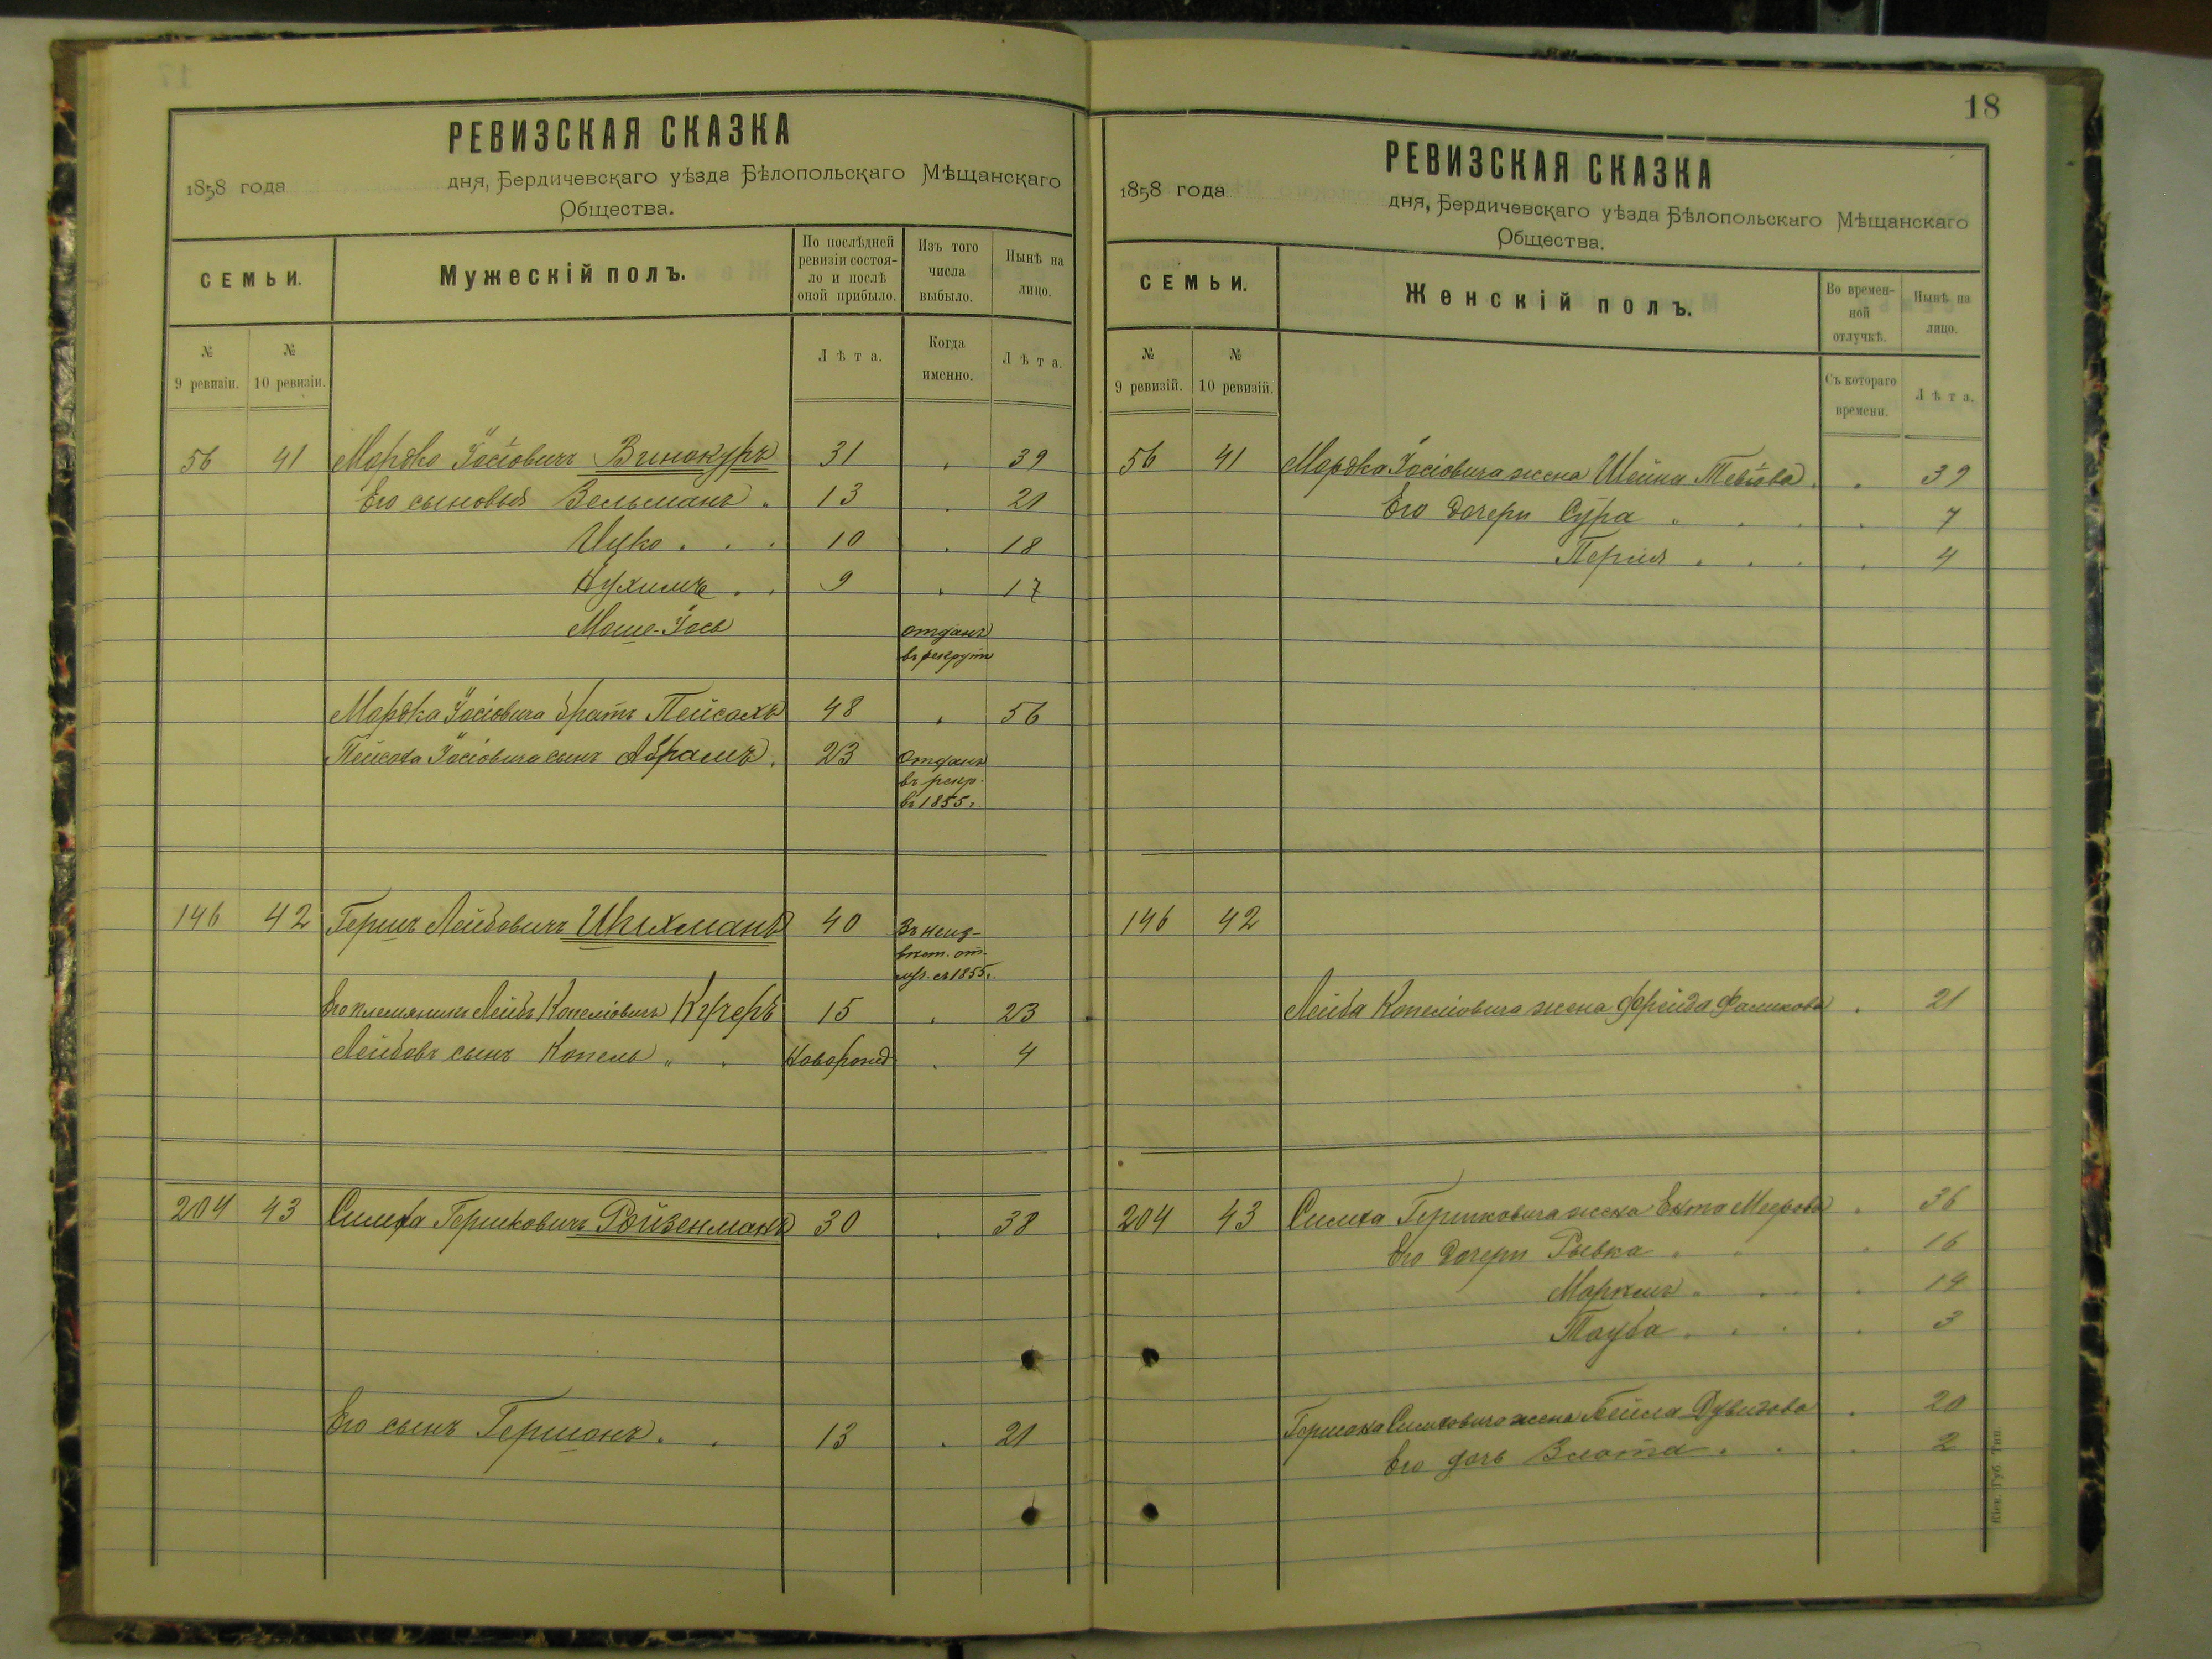 17
РЕВИЗСКАЯ СКАЗКА
1858 года дня, Бердичевскаго уѣзда Бѣлопольскаго Мѣщанскаго
Общества.
СЕМЬИ.
Мужескій полъ.
По послѣдней ревизіи состоя-ло и послѣ оной прибыло.
Изъ того числа выбыло.
Нынѣ на лицо.
№ 9 ревизіи.
№ 10 ревизіи.
Лѣта.
Когда именно.
Лѣта.
56 41 Мордко Іосіовичъ Винокуръ 31 39
Его сыновья Зельманъ 13 21
Ицко 10 18
Нухимъ 9 17
Моше-Іось отданъ
въ рекруты
Мордка Іосіовича братъ Пейсахъ 48 56
Пейсаха Іосіовича сынъ Абрамъ 23 Отданъ
въ рекр.
въ 1855 г.
146 42 Гершъ Лейбовичъ 40 Въ неиз-
вѣст. от-
съ 1855 г.
Его племянникъ Лейбъ Копеліовичъ Кучеръ 15 23
Лейбовъ сынъ Копель " Новорожд 4
204 43 Симха Гершковичъ Ройзенманъ 30 38
Его сынъ Гершонъ 13 21
18
РЕВИЗСКАЯ СКАЗКА
1858 года дня, Бердичевскаго уѣзда Бѣлопольскаго Мѣщанскаго
Общества.
СЕМЬИ.
Женскій полъ.
Во времен-ной отлучкѣ.
Нынѣ на лицо.
№ 9 ревизій.
№ 10 ревизій.
Съ котораго времени.
Лѣта.
56 41 Мордка Іосіовича жена Шейна Тевіова 39
Его дочери Сура 7
Перля 4
146 42
Лейба Копеліовича жена Фрейда 21
204 43 Симха Гершковича жена Ента Меерова 36
Его дочери Рывка 16
14
Тауба 3
Гершона Симховича жена Бейла 20
Его дочь Злота 2
Кіев. Губ. Тип.